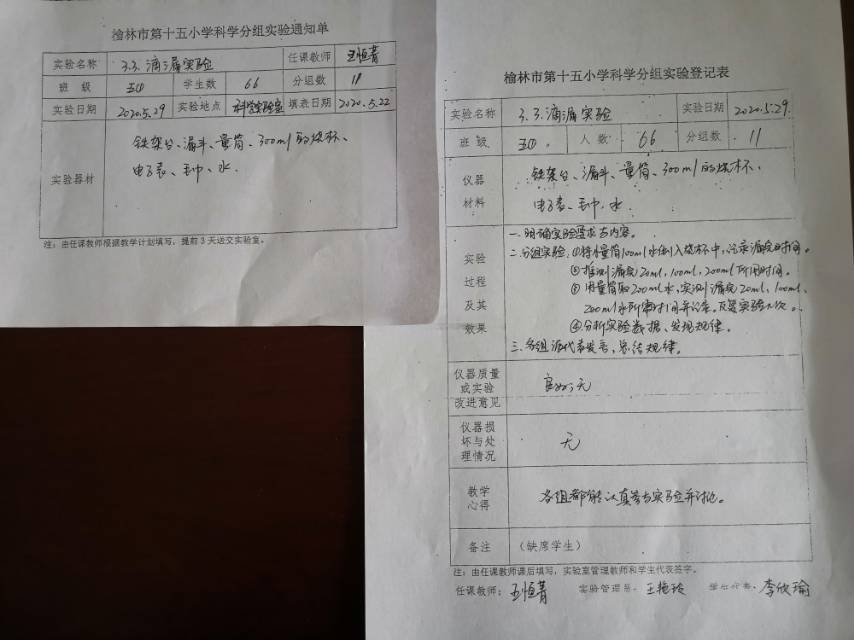 榆林市第十五小学科学分组实验通知单
实验名称 3.3.滴漏实验 任课教师 王恒菁
班 级 五四 学生数 66 分组数 11
实验日期 2020.5.29 实验地点 科学实验室 填表日期 2020.5.22
实验器材
铁架台、漏斗、量筒、300ml的烧杯、
电子表、
水.
注:由任课教师根据教学计划填写,提前3天送交实验室。
榆林市第十五小学科学分组实验登记表
实验名称 3.3.滴漏实验 实验日期 2020.5.29.
班 级 五四. 人 数 66 分组数 11
仪器
材料
铁架台、漏斗、量筒、300ml的烧杯、
电子表、
水.
实验
过程
及其
效果
一.明确实验要求与内容。
二.分组实验:①将量筒100ml水倒入烧杯中,记录漏完时间。
②推测漏完20ml,100ml,200ml所用时间。
③用量筒取200ml水,实测漏完20ml,100ml,
200ml水所需时间并记录。反复实验 次。
④分析实验数据、发现规律。
三.各组派代表发言,总结规律。
仪器质量
或实验
改进意见
完好;无
仪器损
坏与处
理情况
无
教学
心得
各组都能认真参与实验并讨论。
备注 (缺席学生)
注:由任课教师课后填写,实验室管理教师和学生代表签字。
任课教师: 王恒菁 实验管理员: 王艳玲 学生代表: 李欣瑜